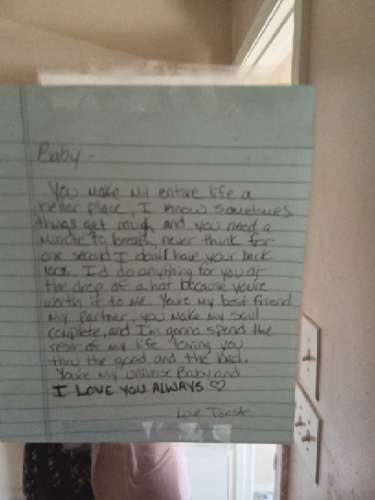 Baby -
You make my entire life a
better place, I know sometimes
things get rough and you need a
minute to breath, never think for
one second I don't have your back
I'd do anything for you at
the drop of a hat because you're
worth it to me. You're my best friend
my partner, you make my soul
complete, and I'm gonna spend the
rest of my life loving you
thru the good and the bad.
You're my universe Baby and
I LOVE YOU ALWAYS ♡
Love